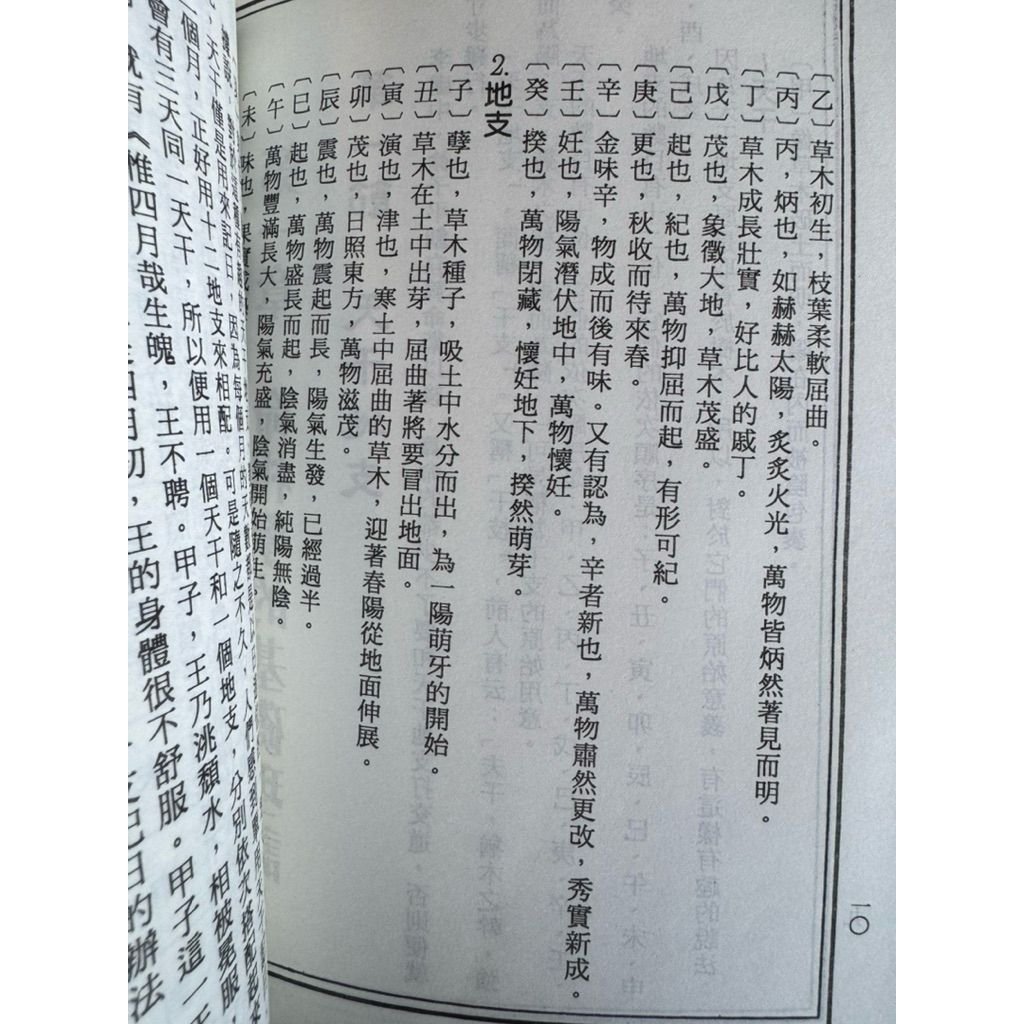 〔乙〕草木初生，枝葉柔軟屈曲。
〔丙〕丙，炳也，如赫赫太陽，炙炙火光，萬物皆炳然著見而明。
〔丁〕草木成長壯實，好比人的戚丁。
〔戊〕茂也，象徵大地，草木茂盛。
〔己〕起也，紀也，萬物抑屈而起，有形可紀。
〔庚〕更也，秋收而待來春。
〔辛〕金味辛，物成而後有味。又有認為，辛者新也，萬物肅然更改，秀實新成。
〔壬〕妊也，陽氣潛伏地中，萬物懷妊。
〔癸〕揆也，萬物閉藏，懷妊地下，揆然萌芽。
2.地支
〔子〕孽也，草木種子，吸土中水分而出，為一陽萌牙的開始。
〔丑〕草木在土中出芽，屈曲著將要冒出地面。
〔寅〕演也，津也，寒土中屈曲的草木，迎著春陽從地面伸展。
〔卯〕茂也，日照東方，萬物滋茂。
〔辰〕震也，萬物震起而長，陽氣生發，已經過半。
〔巳〕起也，萬物盛長而起，陰氣消盡，純陽無陰。
〔午〕萬物豐滿長大，陽氣充盛，陰氣開始萌生。
〔未〕味也，果實成
一〇
天干僅是用來記日，因為每個月的天
個月，正好用十二地支來相配。可是隨之不久，人們
會有三天同一天干，所以便用一個天干和一個地支，分別依次搭配起來
就有《惟四月哉生魄，王不聘。甲子，王乃洮頮水，相被冕服
王的身體很不舒服。甲子這一
的辦法